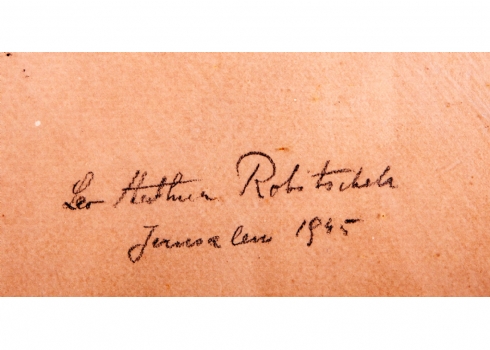 Leo Arthur Robitschek
Jerusalem 1945